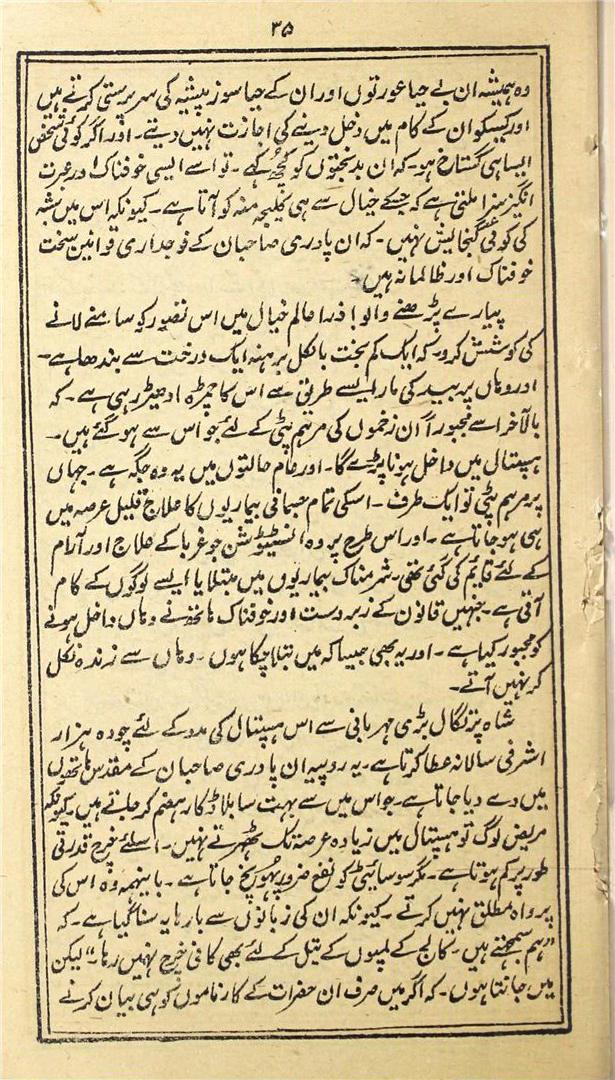 ۳۵
وہ ہمیشہ ان بے حیا عورتوں اور ان کے حیا سوز پیشہ کی سرپرستی کرتے ہیں
اور کسیکو ان کے کام میں دخل دینے کی اجازت نہیں دیتے۔ اور اگر کوئی شخص
ایسا ہی گستاخ ہو۔ کہ ان بدبختوں کو کچھ کہے۔ تو اسے ایسی خوفناک اور عبرت
انگیز سزا ملتی ہے کہ جسکے خیال سے ہی کلیجہ منہ کو آتا ہے۔ کیونکہ اس میں شبہ
کی کوئی گنجایش نہیں۔ کہ ان پادری صاحبان کے فوجداری قوانین سخت
خوفناک اور ظالمانہ ہیں۔
پیارے پڑھنے والو! ذرا عالم خیال میں اس تصور کو سامنے لانے
کی کوشش کرو۔ کہ ایک کم بخت بالکل برہنہ ایک درخت سے بندھا ہے۔
اور وہاں پر بید کی مار ایسے طریق سے اس کا چمڑہ ادھیڑ رہی ہے۔ کہ
بالآخر اسے مجبوراً ان زخموں کی مرہم پٹی کے لئے جو اس سے ہو گئے ہیں۔
ہسپتال میں داخل ہونا پڑے گا۔ اور عام حالتوں میں یہ وہ جگہ ہے۔ جہاں
پر مرہم پٹی تو ایک طرف۔ اسکی تمام جسمانی بیماریوں کا علاج قلیل عرصہ میں
ہی ہو جاتا ہے۔ اور اس طرح پر وہ انسٹیٹیوشن جو غربا کے علاج اور آرام
کے لئے قایم کی گئی تھی۔ شرمناک بیماریوں میں مبتلا یا ایسے لوگوں کے کام
آتی ہے۔ جنہیں قانون کے زبردست اور خوفناک ہاتھ نے وہاں داخل ہونے
کو مجبور کیا ہے۔ اور یہ بھی جیسا کہ میں بتلا چکا ہوں۔ وہاں سے زندہ نکل
کر نہیں آتے۔
شاہ پرتگال بڑی مہربانی سے اس ہسپتال کی مدد کے لئے چودہ ہزار
اشرفی سالانہ عطا کرتا ہے۔ یہ روپیہ ان پادری صاحبان کے مقدس ہاتھوں
میں دے دیا جاتا ہے۔ جو اس میں سے بہت سا بلا ڈکار ہضم کر جاتے ہیں۔ کیونکہ
مریض لوگ تو ہسپتال میں زیادہ عرصہ تک ٹھہرتے نہیں۔ اسلئے خرچ قدرتی
طور پر کم ہوتا ہے۔ مگر سوسائیٹی کو نفع ضرور پہونچ جاتا ہے۔ باینہمہ وہ اس کی
پرواہ مطلق نہیں کرتے۔ کیونکہ ان کی زبانوں سے بارہا یہ سنا گیا ہے۔ کہ
”ہم سمجھتے ہیں۔ کالج کے لمپوں کے تیل کے لئے بھی کافی خرچ نہیں رہا۔“ لیکن
میں جانتا ہوں۔ کہ اگر میں صرف ان حضرات کے کارناموں کو ہی بیان کرنے